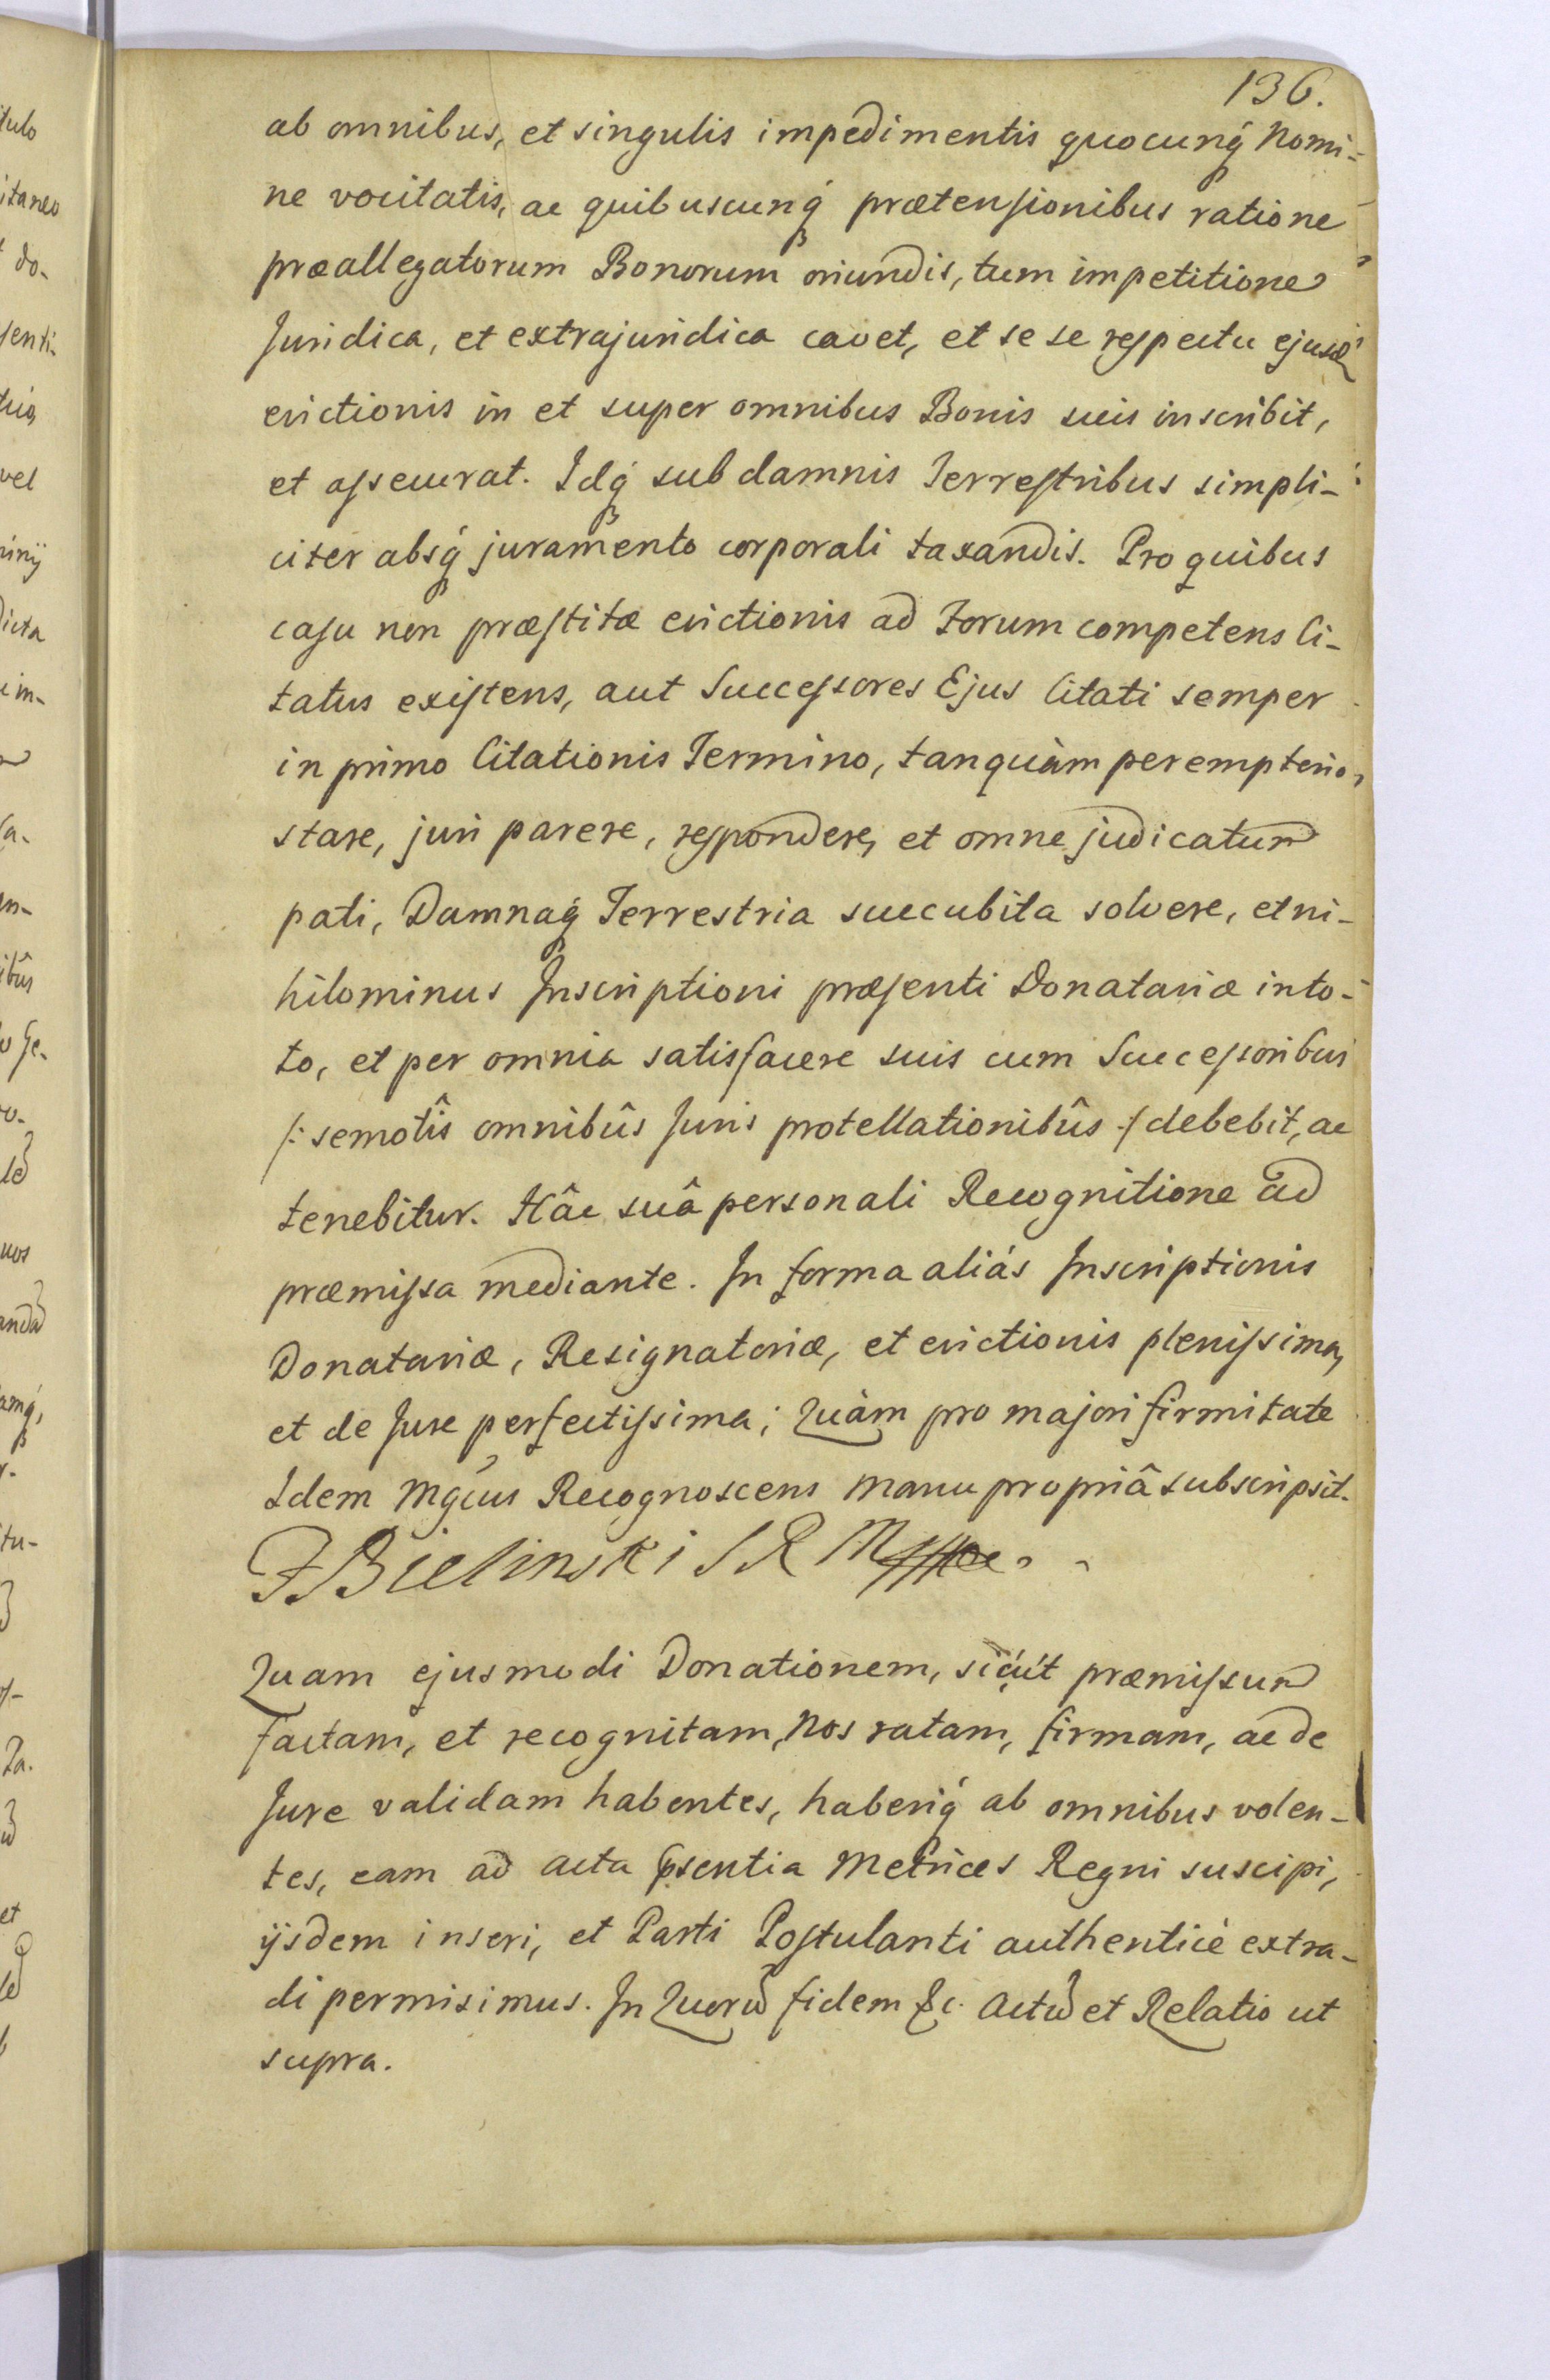 136.
ab omnibus, et singulis impedimentis quocunq́ Nomi-
ne vocitatis, ac quibuscunq́ prætensionibus ratione
præallegatorum Bonorum oriundis, tum impetitione
Juridica, et extrajuridica cavet, et se se respectu ejusd
evictionis in et super omnibus Bonis suis inscribit,
et assecurat. Idq́ sub damnis Terrestribus simpli-
citer absq́ juramento corporali taxandis. Pro quibus
casu non præstitæ evictionis ad Forum competens Ci-
tatus existens, aut Successores Ejus Citati semper
in primo Citationis Termino, tanquàm peremptorio,
stare, juri parere, respondere, et omne judicatum
pati, Damnaq́ Terrestria succubita solvere, et ni-
hilominus Inscriptioni præsenti Donatariæ in to-
to, et per omnia satisfacere suis cum Successoribus
/: semotîs omnibûs Juris protellationibûs :/ debebit, ac
tenebitur. Hâc suâ personali Recognitione ad
præmissa mediante. In forma aliás Inscriptionis
Donatariæ, Resignatoriæ, et evictionis plenissima,
et de Jure perfectissima; Quàm pro majori firmitate
Idem Mgcus Recognoscens manu propriâ subscripsit.
F Bielinski S R M
Quam ejusmodi Donationem, sicút præmissum
factam, et recognitam, Nos ratam, firmam, ac de
Jure validam habentes, haberiq́ ab omnibus volen-
tes, eam ad acta psentia Metrices Regni suscipi,
ijsdem inseri, et Parti Postulanti authenticè extra-
di permisimus. In Quorũ fidem &c. Actũ et Relatio ut
supra.
itulo
itaneo
do-
senti-
vel
dicta
im-
nos
tu-
et